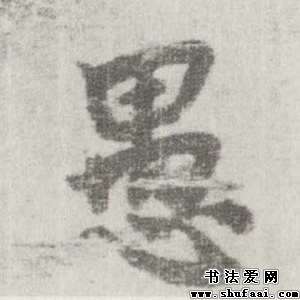 愚
书法爱网
www.shufaai.com